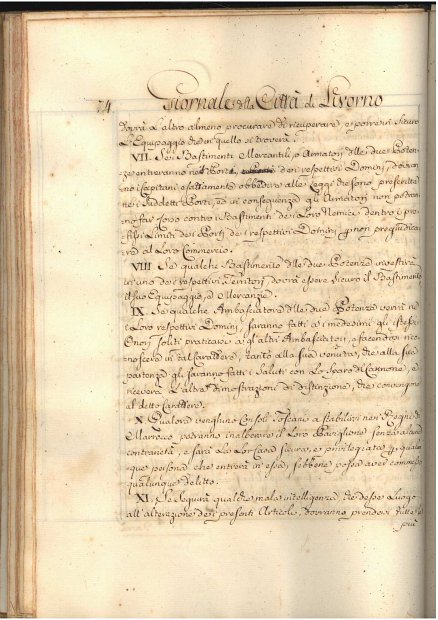 74 Giornale della Città di Livorno
dovrà l'altro almeno procurare di ricuperare, e porre in sicuro
l'Equipaggio che in quello si troverà.
VII. Se i Bastimenti Mercantili, o Armatori delle due Poten-
ze entreranno nei Porti dei respettivi Dominj, dovran-
no i Capitani esattamente obbedire alle Leggi che sono prescritte
nei sudetti Porti, ed in conseguenza gli Armatori non potran-
no far corso contro i Bastimenti dei Loro Nemici dentro i pre-
fissi Limiti dei Porti dei respettivi Dominj per non pregiudica-
re al Loro Commercio.
VIII Se qualche Bastimento delle due Potenze investirà
in uno dei respettivi Territorj, dovrà essere sicuro il Bastimento
il suo Equipaggio, e Mercanzie.
IX. Se qualche Ambasciatore delle due Potenze verrà nei
Loro respettivi Dominj, saranno fatti ai medesimi gli istessi
Onori soliti praticarsi a gl'altri Ambasciatori, e facendosi rico-
noscere in tal Carattere, tanto alla sua venuta, che alla sua
partenza gli saranno fatti i saluti con lo sparo di Cannone, e
riceverà l'altre dimostrazioni di distinzione, che convengono
al detto Carattere.
X. Qualora venghino Consoli Toscani a stabilirsi nei Regni di
Marrocco potranno inalberare il Loro Padiglione senza alcuna
contrarietà, e sarà la Lor Casa sicura, e privilegiata per qualun-
que persona che entrerà in essa, sebbene possa aver commesso
qualunque delitto.
XI. Se seguirà qualche mala intelligenza che desse Luogo
all'alterazione dei presenti Articoli, dovranno prendersi tutte le
più